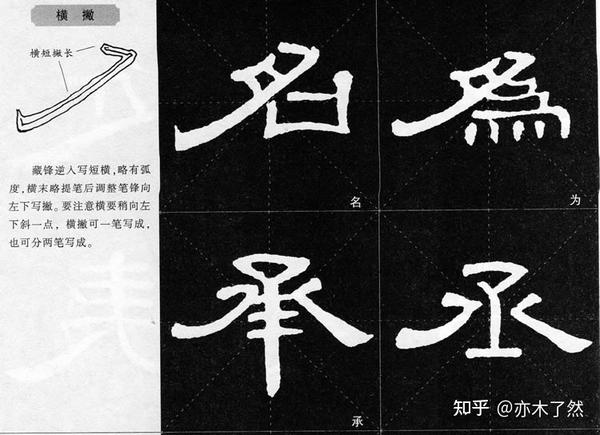 横 撇
横短撇长
藏锋逆入写短横,略有弧
度,横末略提笔后调整笔锋向
左下写撇。要注意横要稍向左
下斜一点，横撇可一笔写成,
也可分两笔写成。
名 為
名 为
承 丞
承
知乎 @亦木了然